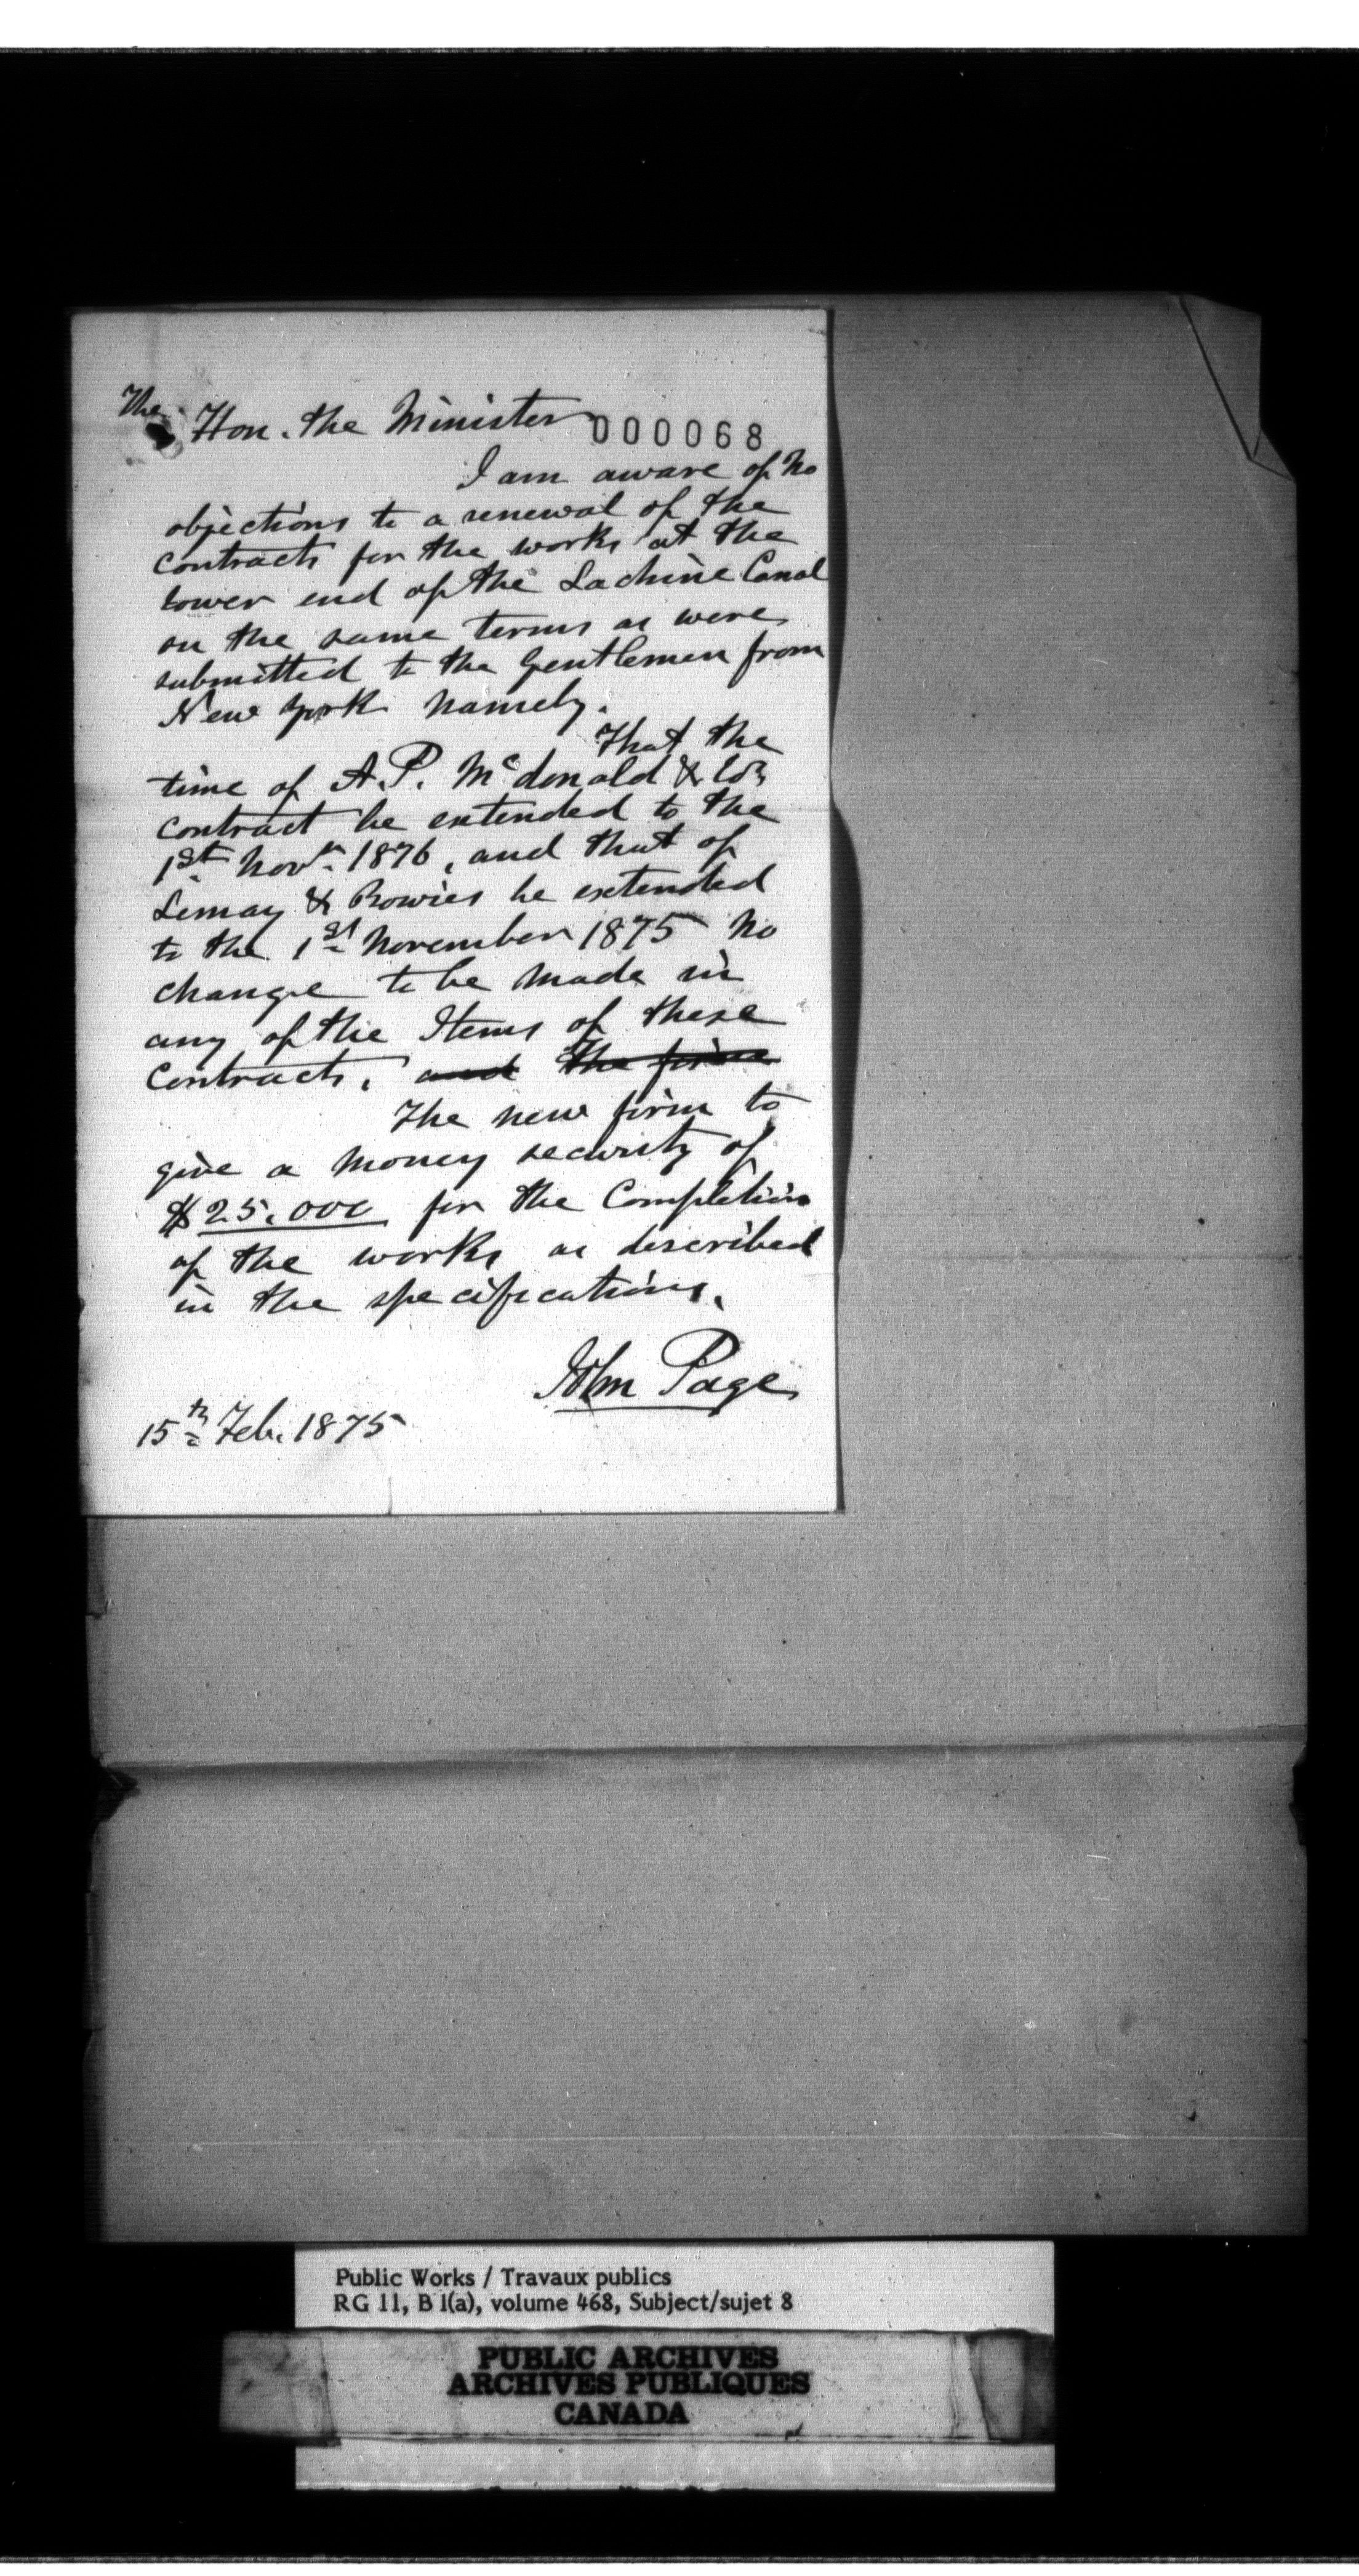 The
Hon. the Minister
000068
I am aware of no
objections to a renewal of the
contracts for the works at the
lower end of the Lachine Canal
on the same terms as were
submitted to the Gentlemen from
New York namely.
That the
time of A. P. McDonald & Co's
contract be extended to the
1st Novr. 1876, and that of
Limay & Bowies be extended
to the 1st November 1875 No
change to be made in
any of the Items of these
Contracts, and the firm
The new firm to
give a money security of
$25,000 for the Completion
of the works as described
in the specifications.
John Page
15th Feb. 1875
Public Works / Travaux publics
RG 11, B 1(a), volume 468, Subject/sujet 8
PUBLIC ARCHIVES
ARCHIVES PUBLIQUES
CANADA